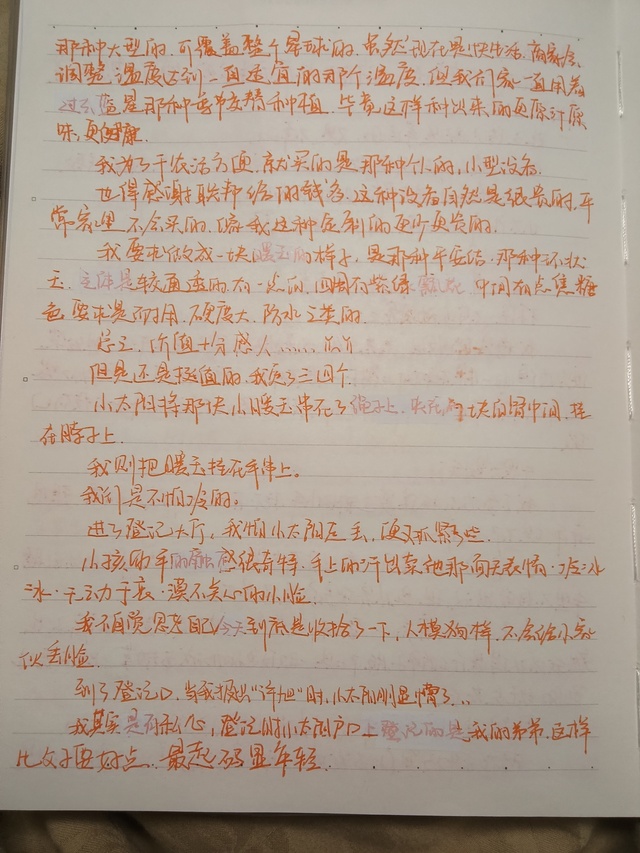 那种大型的.可覆盖整个星球的.虽然现在是快生活.商家会
调整温度达到一直适宜的那个温度.但我们家一直用着
是那种季中友情种植.毕竟这样种出来的更原汁原
味,更健康.
我为了干农活方便.就买的是那种个人的,小型设备.
也得感谢联邦给的钱多.这种设备自然是很贵的,平
常家里不会买的.像我这种定制的更贵的.
我要求做成一块暖玉的样子,是那种平安洁.那种环状
玉.主体是较通透的.有一点白.四周有紫绿飘花.中间有点焦糖
色.要求是耐用.硬度大.防水之类的.
总之.价值十分感人……
但是还是挺值的.我买了三四个.
小太阳将那块小暖玉串在了绳子上.块白骨中间.挂
在脖子上.
我则把暖玉挂在手串上。
我们是不怕冷的。
进了登记大厅,我怕小太阳走丢,便又抓紧些.
小孩的手的触感很奇特.手上的汗出卖他那面无表情.冷冰
冰.无动于衷.漠不关心的小脸.
我不自觉思忖自己今天到底是收拾了一下,人模狗样.不会给小家
伙丢脸.
到了登记口.当我报出“许旭”时,小太阳明显懵了..
我其实是有私心,登记时小太阳户口上登记的是我的弟弟.这样
比父子要好点.最起码显年轻.